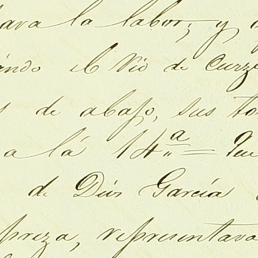 ava la labor, y a
endo el Rio de Curze
s de abajo, sus to
a la 14ª = Que
de Dios García
preza, representava